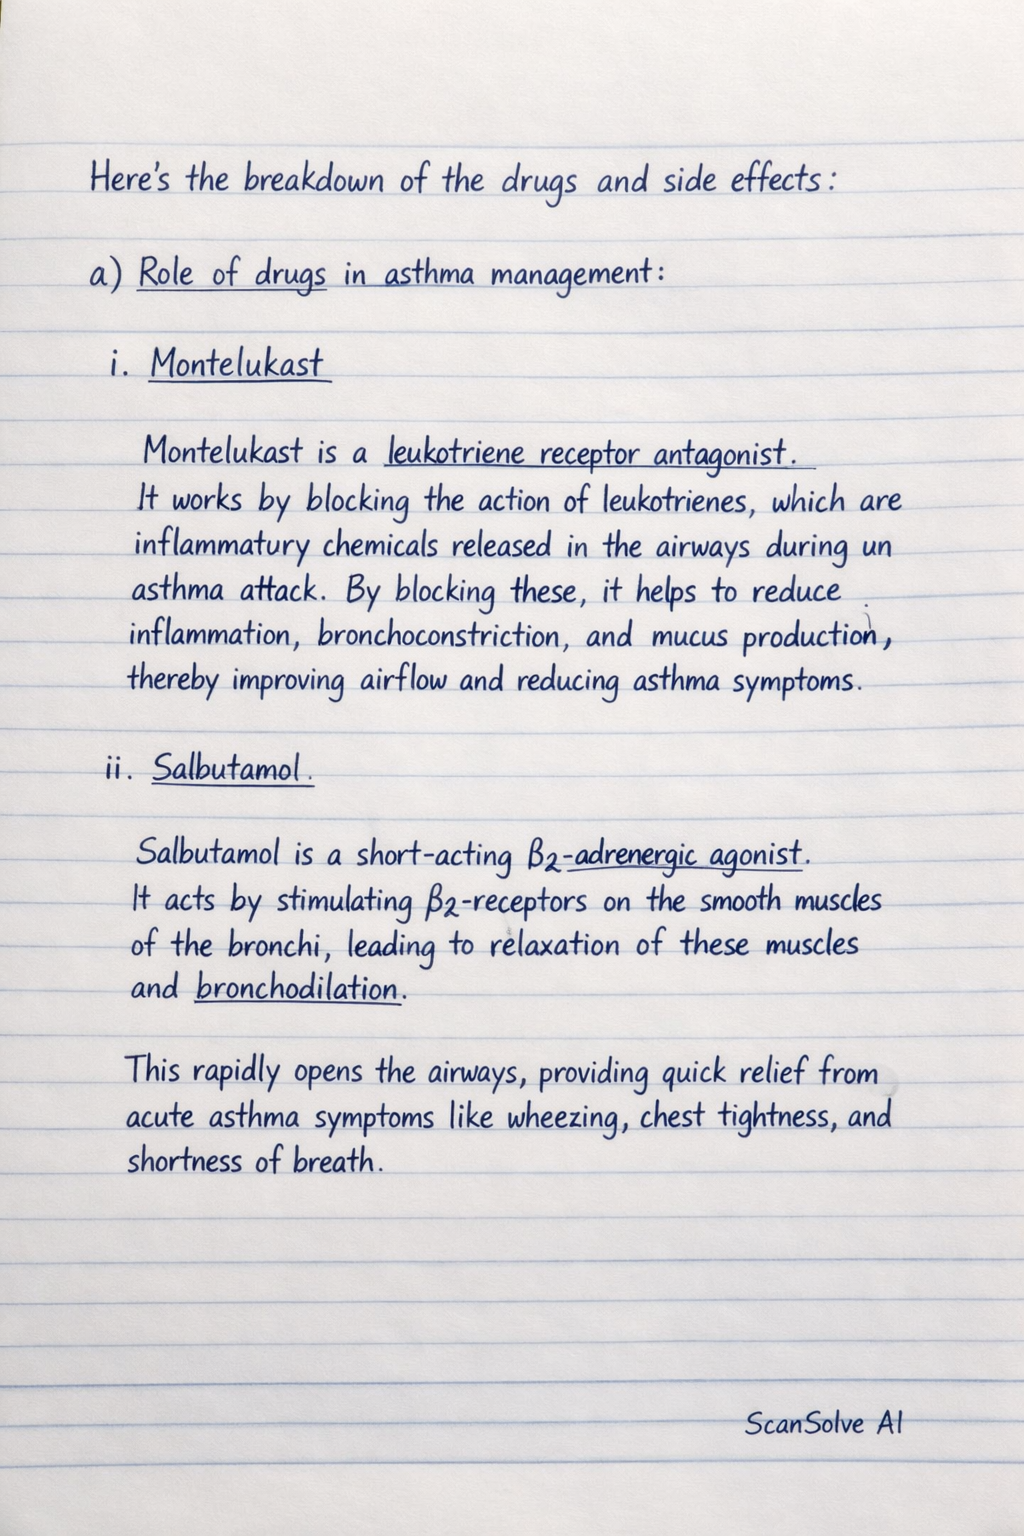 Here's the breakdown of the drugs and side effects:
a) Role of drugs in asthma management:
i. Montelukast
Montelukast is a leukotriene receptor antagonist.
It works by blocking the action of leukotrienes, which are
inflammatury chemicals released in the airways during un
asthma attack. By blocking these, it helps to reduce
inflammation, bronchoconstriction, and mucus production,
thereby improving airflow and reducing asthma symptoms.
ii. Salbutamol.
Salbutamol is a short-acting β2-adrenergic agonist.
It acts by stimulating β2-receptors on the smooth muscles
of the bronchi, leading to relaxation of these muscles
and bronchodilation.
This rapidly opens the airways, providing quick relief from
acute asthma symptoms like wheezing, chest tightness, and
shortness of breath.
ScanSolve AI